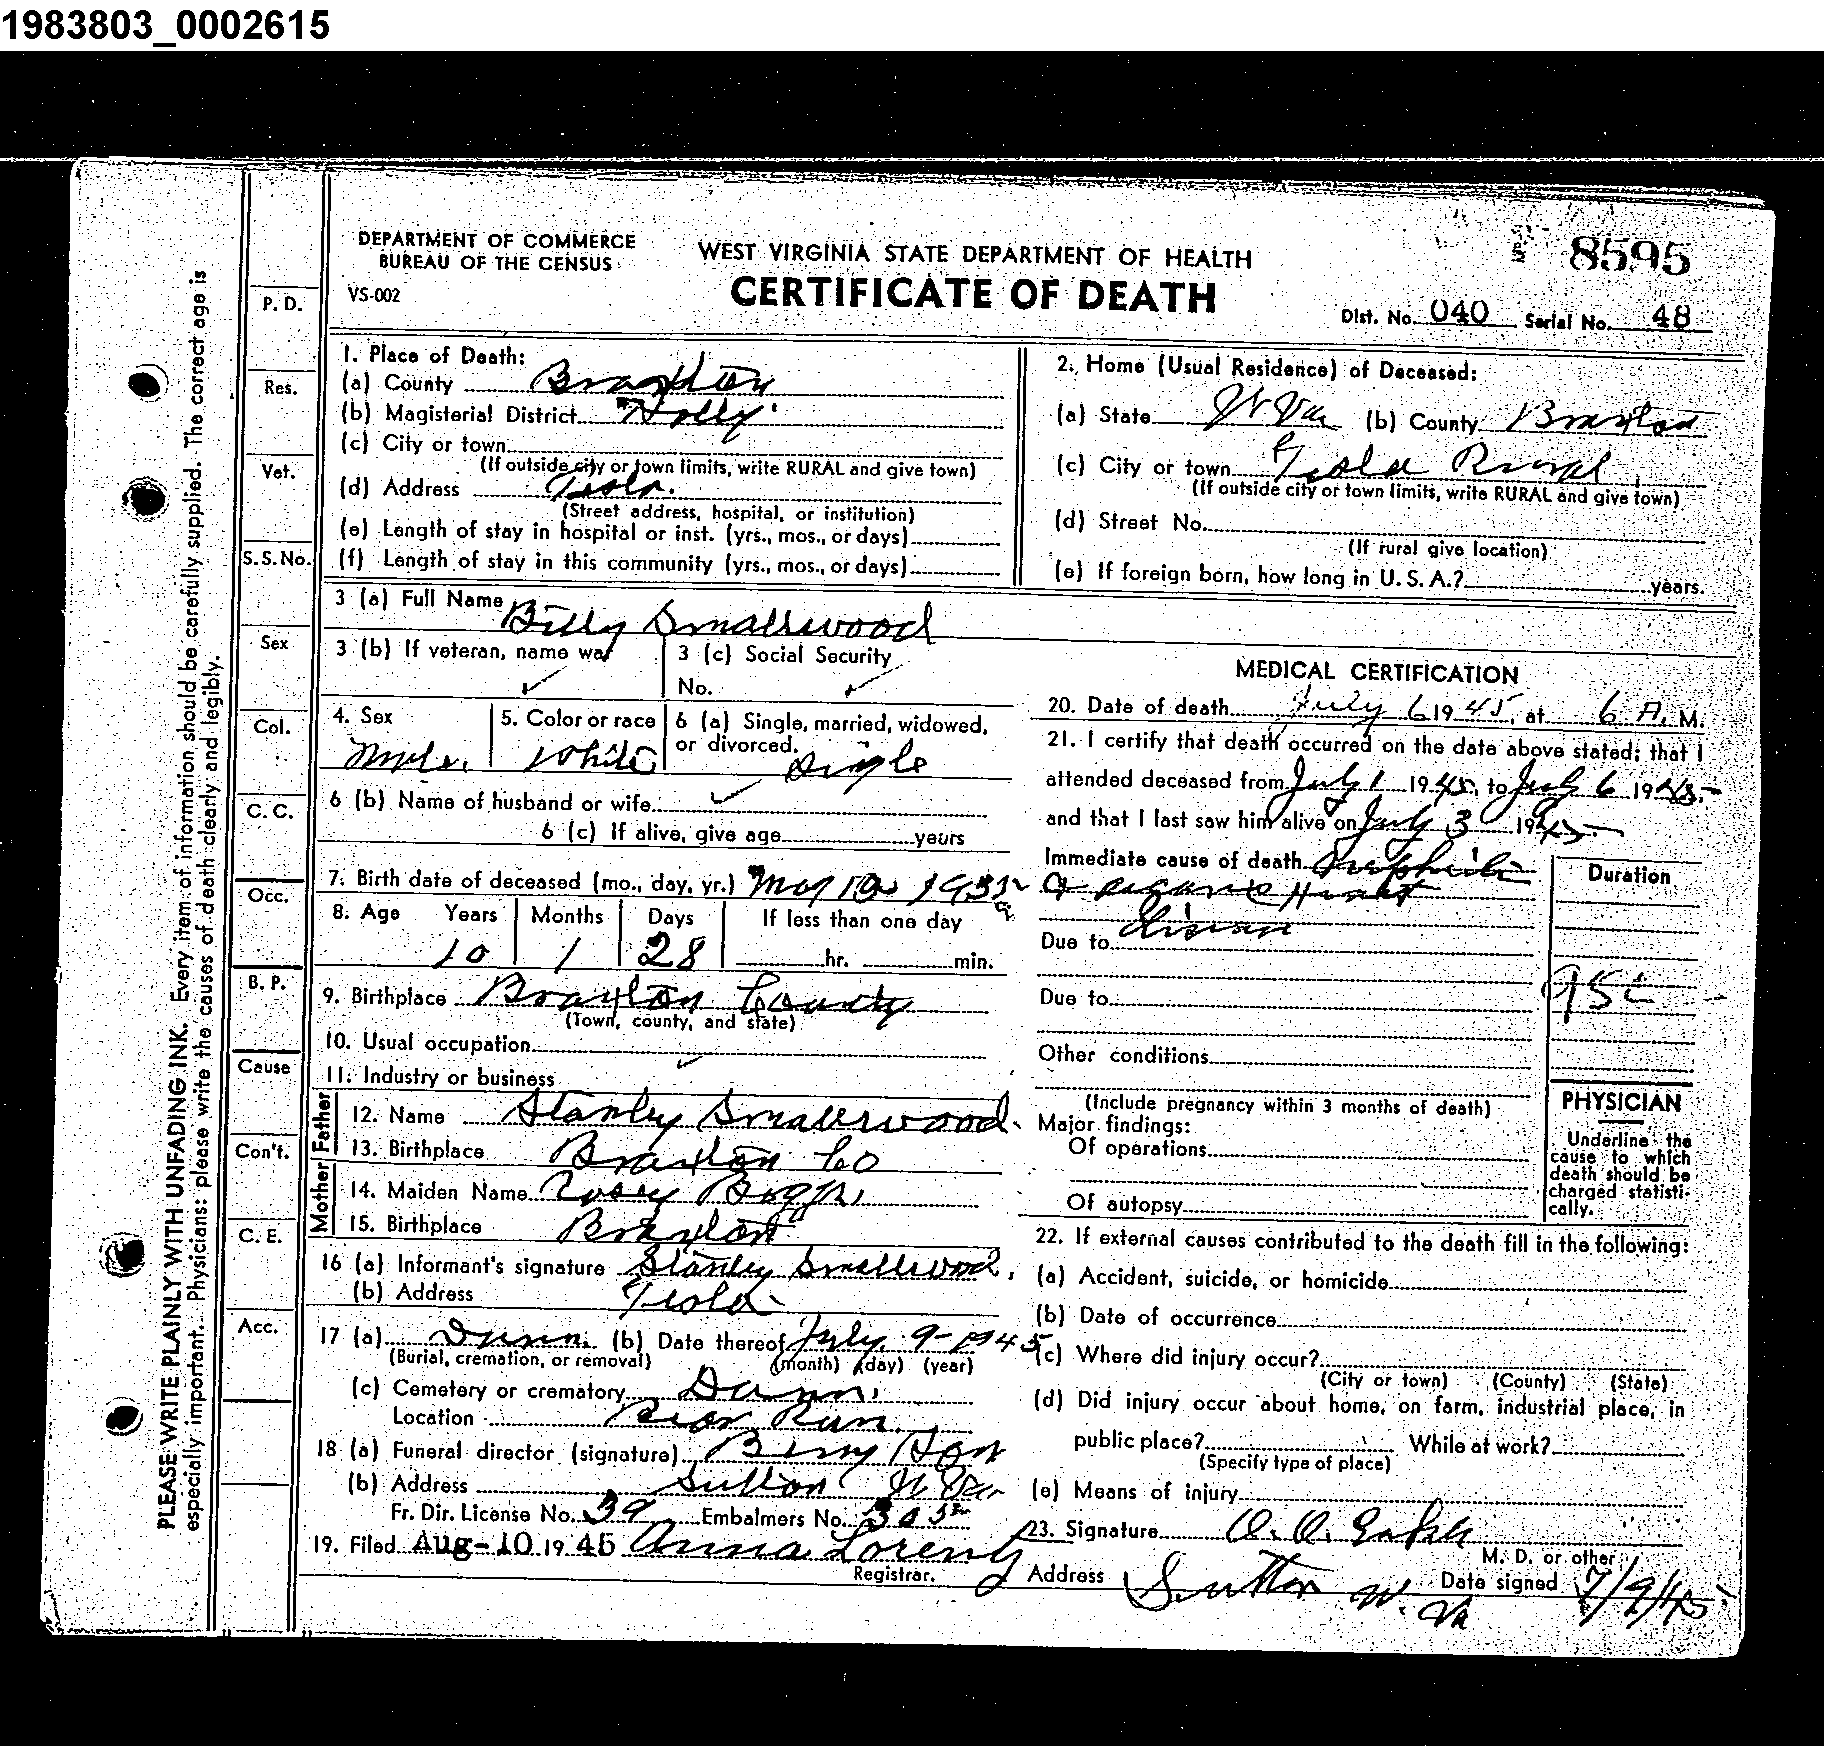 1983803_0002615
DEPARTMENT OF COMMERCE
BUREAU OF THE CENSUS
VS-002
WEST VIRGINIA STATE DEPARTMENT OF HEALTH
CERTIFICATE OF DEATH
8595
Dist. No. 040 Serial No. 48
P. D.
Res.
Vet.
S. S. No.
Sex
Col.
C. C.
Occ.
B. P.
Cause
Con't.
C. E.
Acc.
PLEASE WRITE PLAINLY WITH UNFADING INK. Every item of information should be carefully supplied. The correct age is
especially important. Physicians: please write the causes of death clearly and legibly.
1. Place of Death:
(a) County Braxton
(b) Magisterial District Holly
(c) City or town
(If outside city or town limits, write RURAL and give town)
(d) Address Tesla.
(Street address, hospital, or institution)
(e) Length of stay in hospital or inst. (yrs., mos., or days)
(f) Length of stay in this community (yrs., mos., or days)
2. Home (Usual Residence) of Deceased:
(a) State W Va (b) County Braxton
(c) City or town Tesla Rural
(If outside city or town limits, write RURAL and give town)
(d) Street No.
(If rural give location)
(e) If foreign born, how long in U. S. A.? years.
3 (a) Full Name Billy Smallwood
3 (b) If veteran, name war ✓
3 (c) Social Security
No. ✓
4. Sex
Male.
5. Color or race
White
6 (a) Single, married, widowed,
or divorced. Single
6 (b) Name of husband or wife ✓
6 (c) If alive, give age years
7. Birth date of deceased (mo., day, yr.) May 10 1935
8. Age Years Months Days If less than one day
10 1 28 hr. min.
9. Birthplace Braxton County
(Town, county, and state)
10. Usual occupation ✓
11. Industry or business
Father
12. Name Stanley Smallwood.
13. Birthplace Braxton Co
Mother
14. Maiden Name Rosey Boggs.
15. Birthplace Braxton "
16 (a) Informant's signature Stanley Smallwood.
(b) Address Tesla
17 (a) Dunn. (b) Date thereof July 9-1945
(Burial, cremation, or removal) (month) (day) (year)
(c) Cemetery or crematory Dunn.
Location Bear Run.
18 (a) Funeral director (signature) Berry Son
(b) Address Sutton W Va
Fr. Dir. License No. 39 Embalmers No.
19. Filed Aug-10 1945 Anna Lorentz
Registrar.
MEDICAL CERTIFICATION
20. Date of death July 6 1945, at 6 A. M.
21. I certify that death occurred on the date above stated; that I
attended deceased from July 1 1945, to July 6 1945
and that I last saw him alive on July 3 1945
Immediate cause of death
& organic Heart
Disease
Duration
Due to
Due to
95c
Other conditions
(Include pregnancy within 3 months of death)
Major findings:
Of operations
Of autopsy
PHYSICIAN
Underline the
cause to which
death should be
charged statisti-
cally.
22. If external causes contributed to the death fill in the following:
(a) Accident, suicide, or homicide
(b) Date of occurrence
(c) Where did injury occur?
(City or town) (County) (State)
(d) Did injury occur about home, on farm, industrial place, in
public place? While at work?
(Specify type of place)
(e) Means of injury
23. Signature
M. D. or other
Address Sutton W. Va Date signed 7/9/45